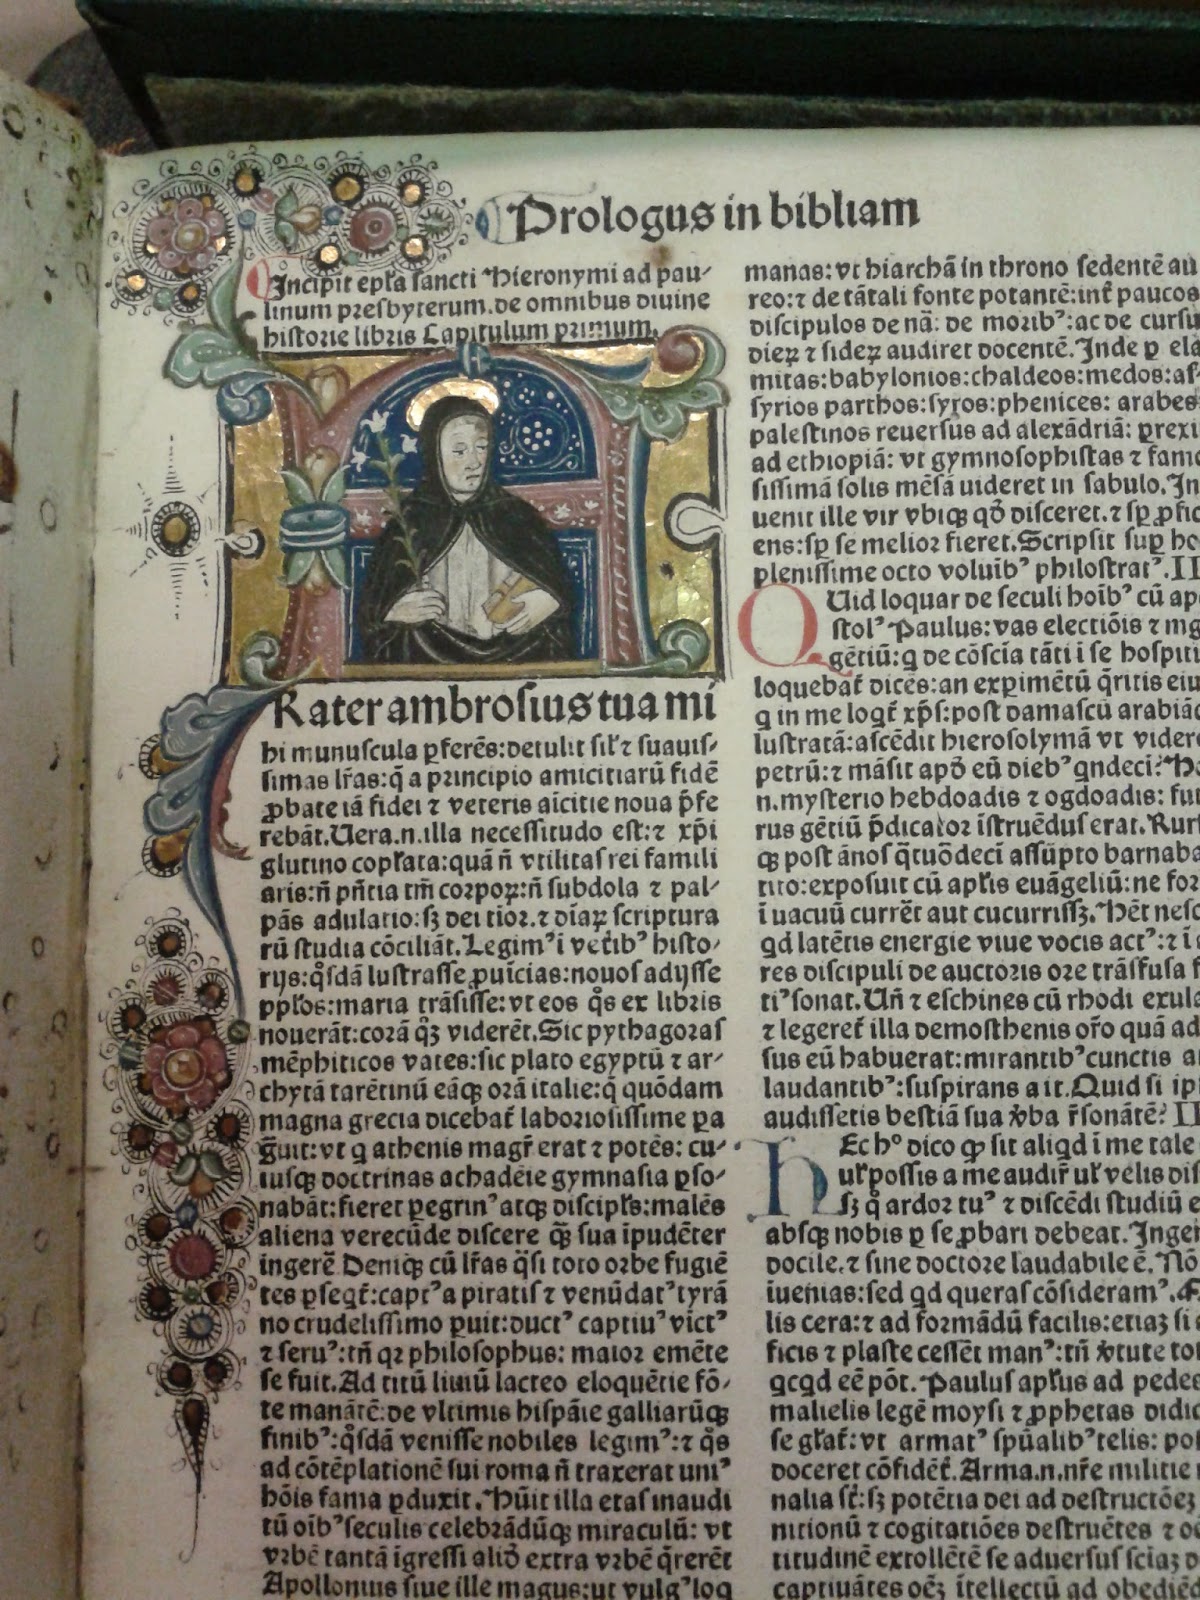 Prologus in bibliam
Incipit epl̃a sancti Hieronymi ad pau⸗
linum presbyterum. de omnibus diuine
historie libris Capitulum primum.
F
Rater ambrosius tua mi
hi munuscula ꝑferẽs: detulit sil̃ ⁊ suauis⸗
simas lr̃as: q̃ a principio amicitiarũ fidẽ
ꝓbate iã fidei ⁊ veteris aĩcitie noua p̃fe
rebãt. Uera .n. illa necessitudo est: ⁊ xp̃i
glutino copl̃ata: quã ñ vtilitas rei famili
aris: ñ pñtia tm̃ corpoꝝ: ñ subdola ⁊ pal⸗
pãs adulatio: sꝫ dei tior. ⁊ diãꝝ scriptura
rũ studia cõciliãt. Legimꝰ ĩ vetibꝰ histo⸗
rijs: q̃sdã lustrasse ꝓuĩcias: nouos adijsse
ppl̃os: maria trãsisse: vt eos q̃s ex libris
nouerãt: corã q̃ꝫ viderẽt. Sic pythagoras
mẽphiticos vates: sic plato egyptũ ⁊ ar⸗
chytã tarẽtinũ eãqꝫ orã italie: q̃ quõdam
magna grecia dicebat̃ laboriosissime ꝑa
g̃uit: vt q athenis magr̃ erat ⁊ potẽs: cu⸗
iusqꝫ doctrinas achadẽie gymnasia ꝑso⸗
nabãt: fieret ꝑegrinꝰ atqꝫ discipl̃s: malẽs
aliena verecũde discere qꝫ̃ sua ĩpudẽter
ingerẽ. Deniqꝫ cũ lr̃as q̃si toto orbe fugiẽ
tes ꝑseqt̃: captꝰ a piratis ⁊ venũdatꝰ tyrã
no crudelissimo ꝑuit: ductꝰ captiuꝰ victꝰ
⁊ seruꝰ: tñ qꝛ philosophus: maior emẽte
se fuit. Ad titũ liuiũ lacteo eloquẽtie fõ⸗
te manãtẽ: de vltimis hispãie galliarũqꝫ
finibꝰ: q̃sdã venisse nobiles legimꝰ: ⁊ q̃s
ad cõtẽplationẽ sui roma ñ traxerat uniꝰ
hõis fama ꝑduxit. Hũit illa etas inaudi
tũ oĩbꝰ seculis celebrãdũqꝫ miraculũ: vt
vrbẽ tantã ĩgressi aliđ extra vrbẽ q̃rerẽt
Apollonius siue ille magus: ut vulgꝰ loq
manas: vt hiarchã in throno sedentẽ au
reo: ⁊ de tãtali fonte potantẽ: int̃ paucos
discipulos de nã: de moribꝰ: ac de cursu
dieꝝ ⁊ sideꝝ audiret docentẽ. Inde ꝑ ela
mitas: babylonios: chaldeos: medos: as⸗
syrios parthos: syros: phenices: arabes
palestinos reuersus ad alexãdriã: ꝑrexi
ad ethiopiã: vt gymnosophistas ⁊ famo
sissimã solis mẽsã uideret in sabulo. In
uenit ille vir vbiqꝫ qđ disceret. ⁊ sꝑ ꝓfic
ens: sꝑ se melior fieret. Scripsit suꝑ ho
plenissime octo voluĩbꝰ philostratꝰ. II
QUid loquar de seculi hoĩbꝰ cũ ap
stolꝰ Paulus: vas electiõis ⁊ mg
gẽtiũ: q de cõscĩa tãti ĩ se hospiti
loquebat̃ dicẽs: an exꝑimẽtũ q̃ritis eiu
q in me loqt̃ xp̃s: post damascũ arabiãq
lustratã: ascẽdit hierosolymã vt videre
petrũ: ⁊ mãsit apđ eũ diebꝰ qndeci: H
.n. mysterio hebdoadis ⁊ ogdoadis: fut
rus gẽtiũ p̃dicator ĩstruẽdus erat. Rurs
qꝫ post ãnos q̃tuõdecĩ assũpto barnaba
tito: exposuit cũ apl̃is euãgeliũ: ne for
ĩ uacuũ curreret aut cucurrissꝫ. Hẽt nesc
qd latẽtis energie viue vocis actꝰ: ⁊ ĩ
res discipuli de auctoris ore trãsfusa f
tiꝰ sonat. Uñ ⁊ eschines cũ rhodi exula
⁊ legeret̃ illa demosthenis or̃o quã ad
sus eũ habuerat: mirantibꝰ cunctis a
laudantibꝰ: suspirans ait. Quid si ip
audissetis bestiã sua v̾ba r̃sonãtẽ? II
hEc hº dico ꝙ sit aliqd ĩ me tale
ul̃ possis a me audir̃ ul̃ velis dis
sꝫ q̃ ardor tuꝰ ⁊ discẽdi studiũ e
absqꝫ nobis ꝑ se ꝓbari debeat. Ingen
docile. ⁊ sine doctore laudabile ẽ. Nõ
iuenias: sed qd queras cõsideramꝰ.
lis cera: ⁊ ad formãdũ facilis: etiaꝫ si
ficis ⁊ plaste cessẽt manꝰ: tñ v̾tute tot
qcqd eẽ põt. Paulus apl̃us ad pedes
malielis legẽ moysi ⁊ ꝓphetas didic
se gl̃at̃: vt armatꝰ spũalibꝰ telis: pos
doceret cõfidẽt̃. Arma .n. nr̃e militie
nalia st̃: sꝫ potẽtia dei ad destructõeꝫ
nitionũ ⁊ cogitatiões destruẽtes ⁊ o
titudinẽ extollẽtẽ se aduersus scĩaꝫ d
captiuãtes oẽꝫ ĩtellectũ ad obediẽd